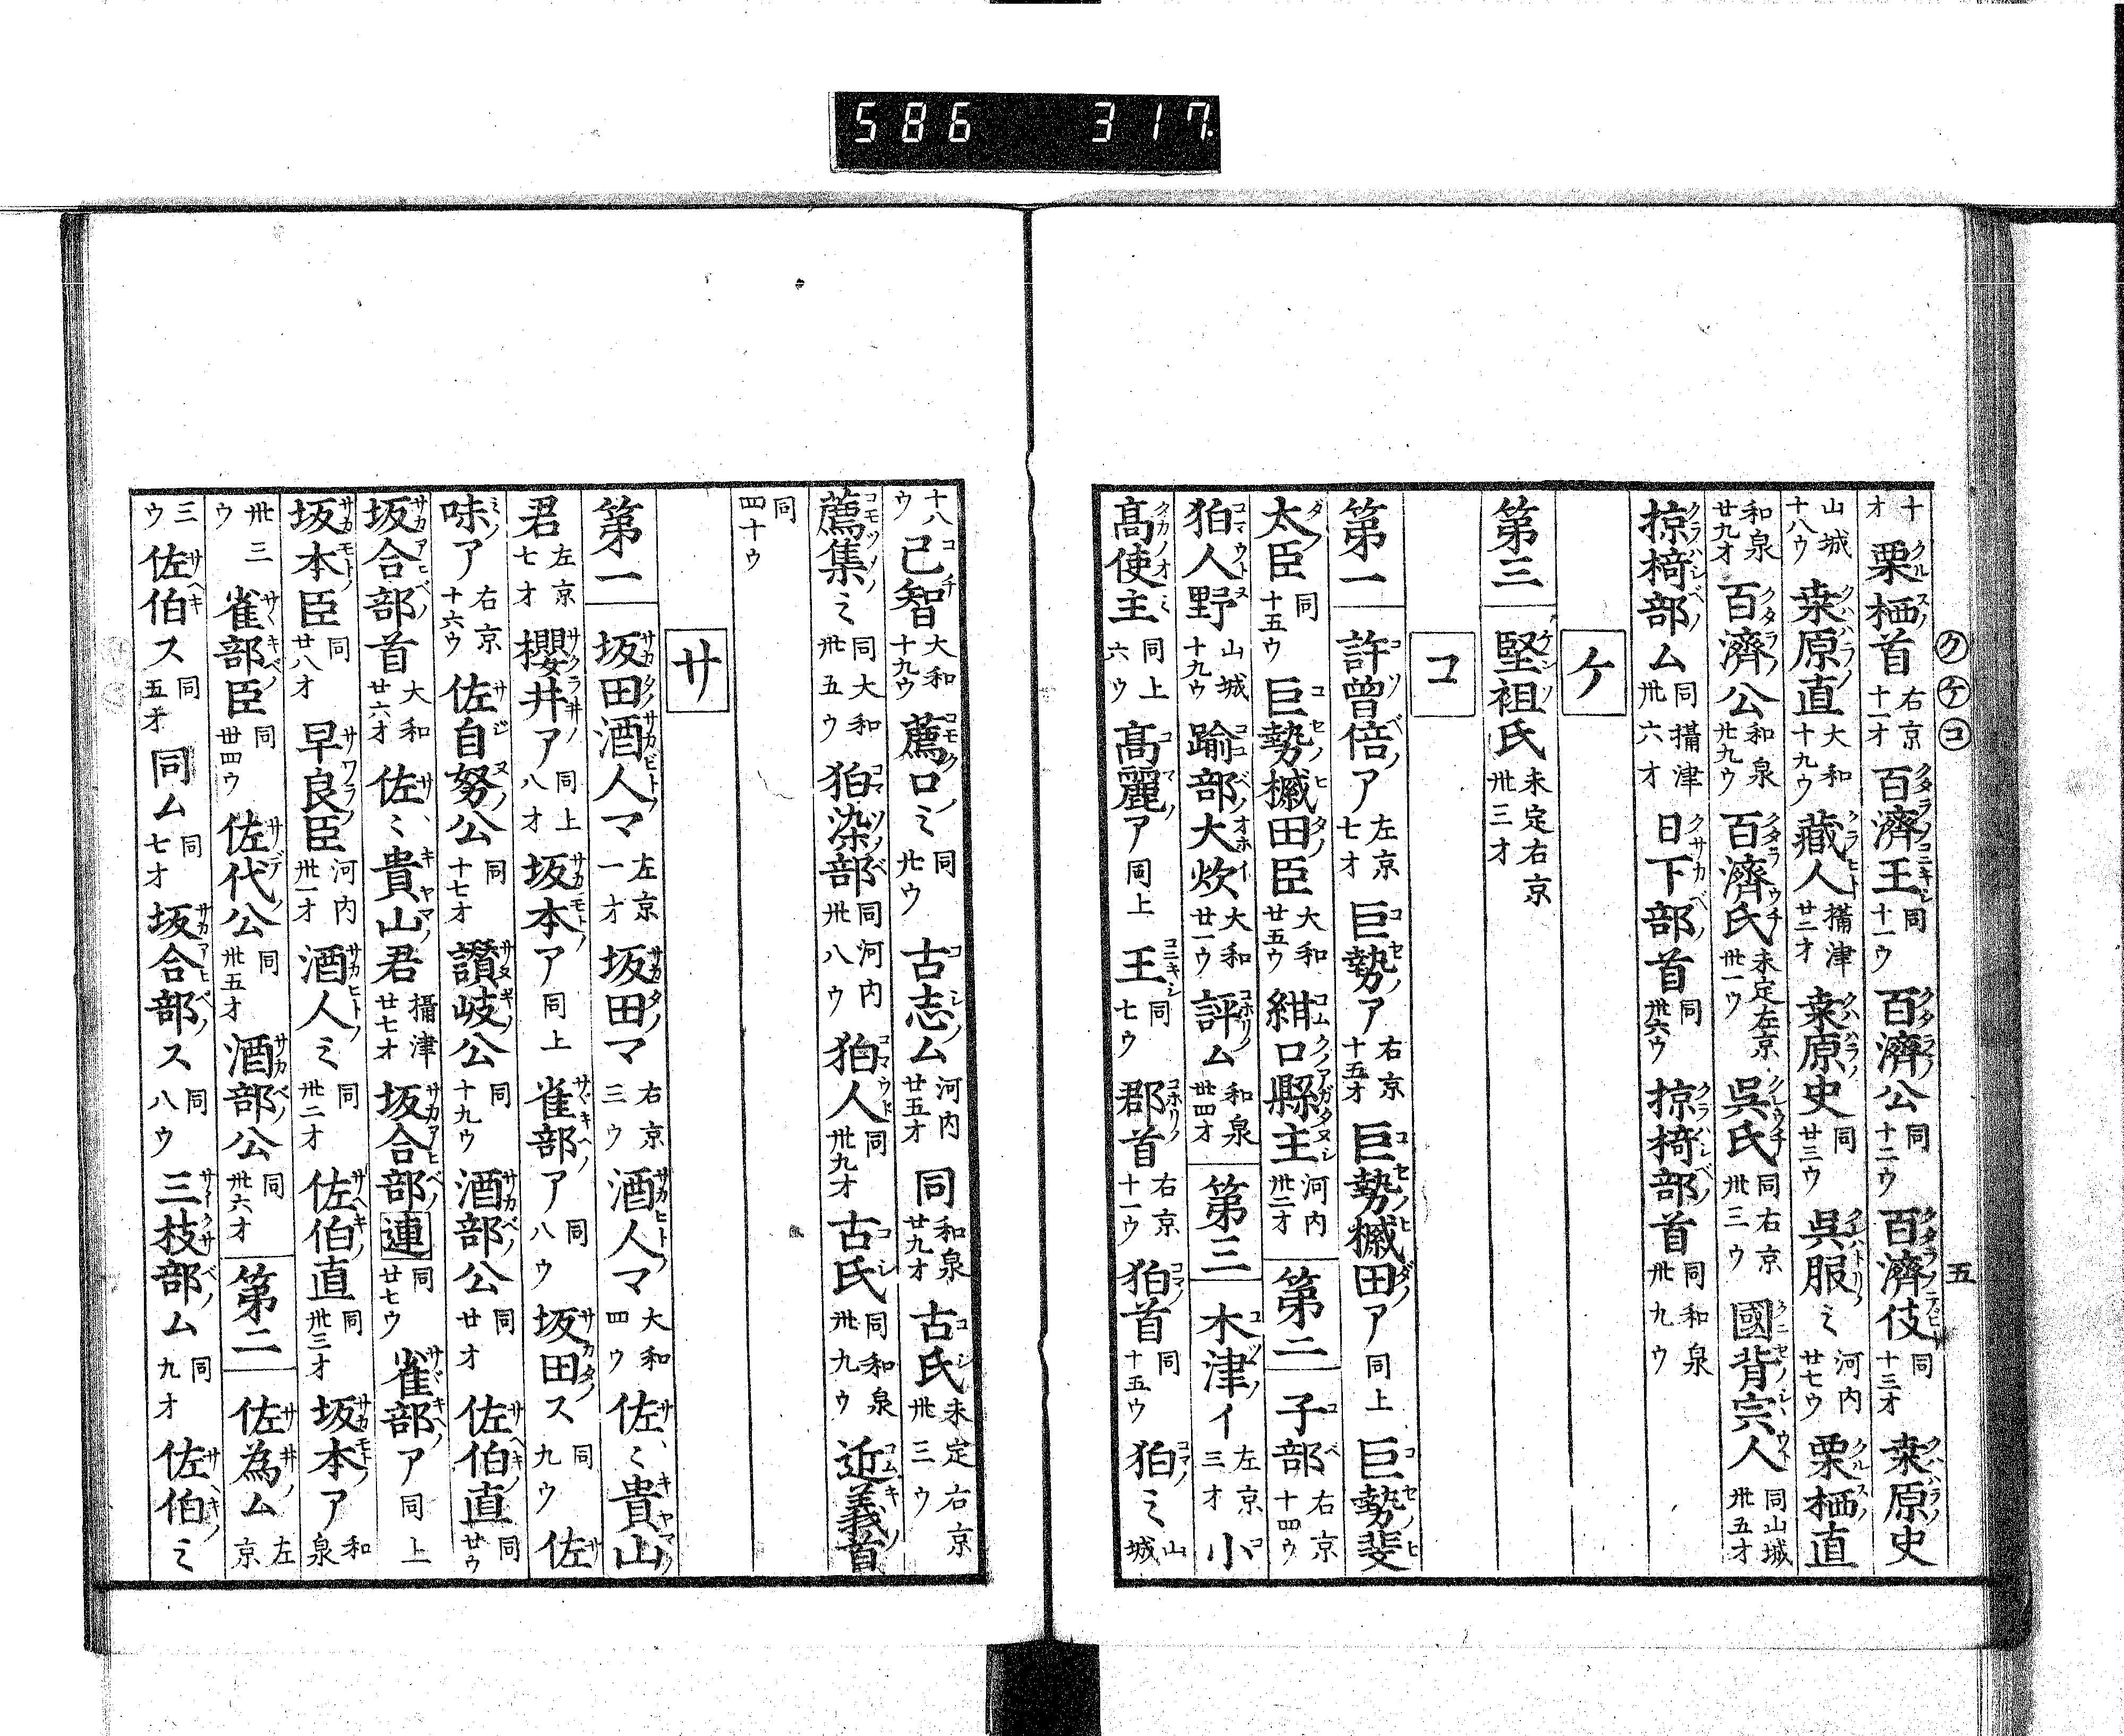 586 317
クケコ 五
十オ 栗栖首 右京十一オ 百濟王 同十一ウ 百濟公 同十二ウ 百濟伎 同十三オ 桒原史
山城十八ウ 桒原直 大和十九ウ 藏人 攝津廿二オ 桒原史 同廿三ウ 呉服ミ 河内廿七ウ 栗栖直
和泉廿九オ 百濟公 和泉廿九ウ 百濟氏 未定左京卅一ウ 呉氏 同右京卅三ウ 國背宗人 同山城卅五オ
掠椅部ム 同攝津卅六オ 日下部首 同卅六ウ 掠椅部首 同和泉卅九ウ
ケ
第三 堅祖氏 未定右京卅三オ
コ
第一 許曾倍ア 左京七オ 巨勢ア 右京十五オ 巨勢槭田ア 同上 巨勢斐
太臣 同十五ウ 巨勢槭田臣 大和廿五ウ 紺口縣主 河内卅二オ 第二 子部 右京十四ウ
狛人野 山城十九ウ 踰部大炊 大和廿一ウ 評ム 和泉卅四オ 第三 木津イ 左京三オ 小
髙使主 同上六ウ 髙麗ア 同上 王 同七ウ 郡首 右京十一ウ 狛首 同十五ウ 狛ミ 山城
十八ウ 己智 大和十九ウ 薦口ミ 同廿ウ 古志ム 河内廿五オ 同 和泉廿九オ 古氏 未定右京卅三ウ
薦集ミ 同大和卅五ウ 狛染部 同河内卅八ウ 狛人 同卅九オ 古氏 同和泉卅九ウ 近義首
同四十ウ
サ
第一 坂田酒人マ 左京一オ 坂田マ 右京三ウ 酒人マ 大和四ウ 佐ミ貴山
君 左京七オ 櫻井ア 同上八オ 坂本ア 同上 雀部ア 同八ウ 坂田ス 同九ウ 佐
味ア 右京十六ウ 佐自努公 同十七オ 讃岐公 同十九ウ 酒部公 同廿オ 佐伯直 同廿ウ
坂合部首 大和廿六オ 佐ミ貴山君 攝津廿七オ 坂合部連 同廿七ウ 雀部ア 同上
坂本臣 同廿八オ 早良臣 河内卅一オ 酒人ミ 同卅二オ 佐伯直 同卅三オ 坂本ア 和泉
卅三ウ 雀部臣 同卅四ウ 佐代公 同卅五オ 酒部公 同卅六オ 第二 佐為ム 左京
三ウ 佐伯ス 同五オ 同ム 同七オ 坂合部ス 同八ウ 三枝部ム 同九オ 佐伯ミ